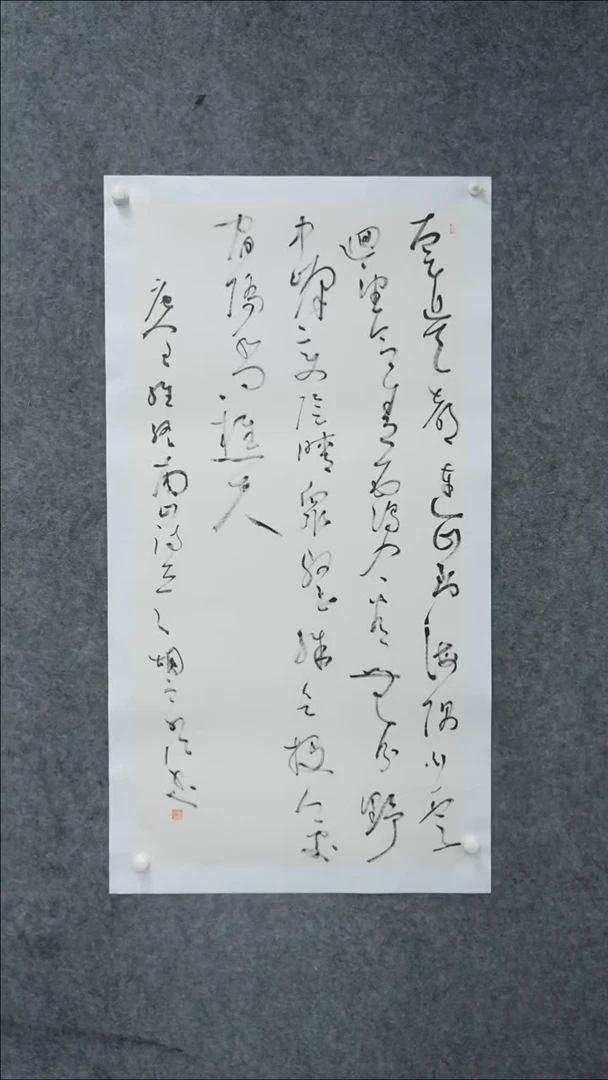 太乙近天都連山到海隅白雲
迴望合青靄入看無分野
中峰變陰晴衆壑殊欲投人處
宿隔水問樵夫
唐人王維終南山詩